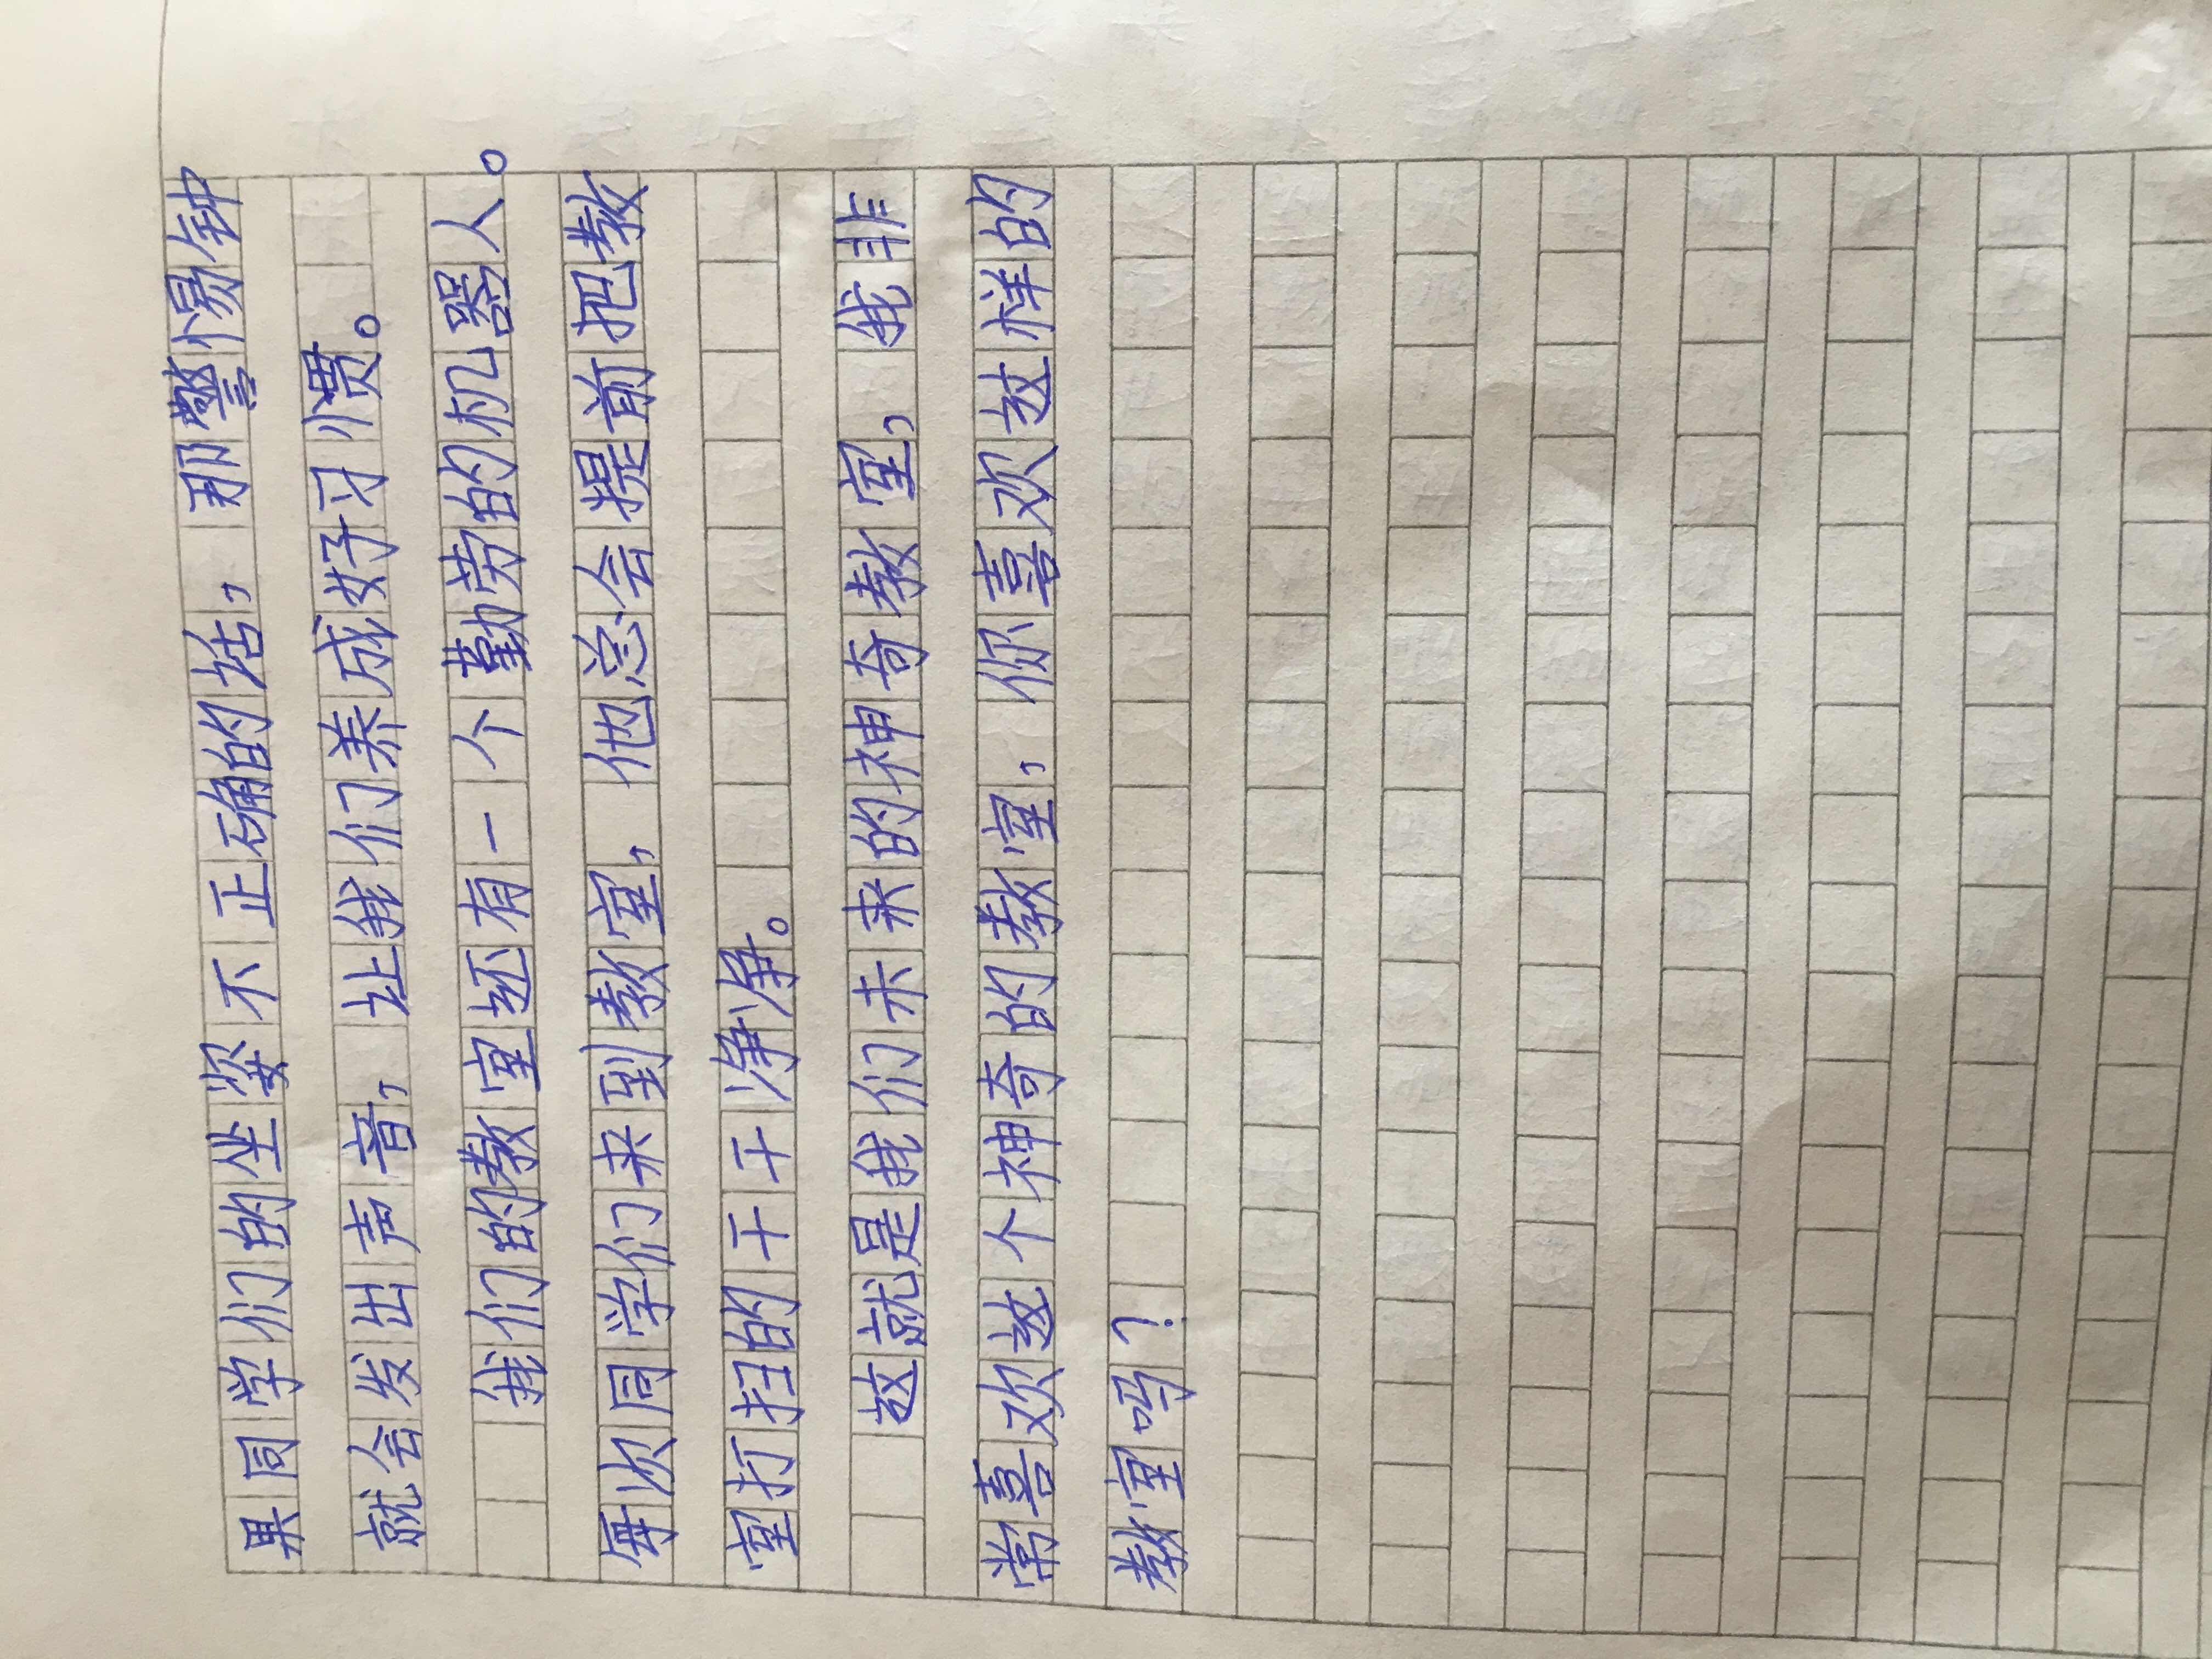 果同学们的坐姿不正确的话，那警惕钟
就会发出声音，让我们养成好习惯。
我们的教室还有一个勤劳的机器人。
每次同学们来到教室，他总会提前把教
室打扫的干干净净。
这就是我们未来的神奇教室，我非
常喜欢这个神奇的教室，你喜欢这样的
教室吗？